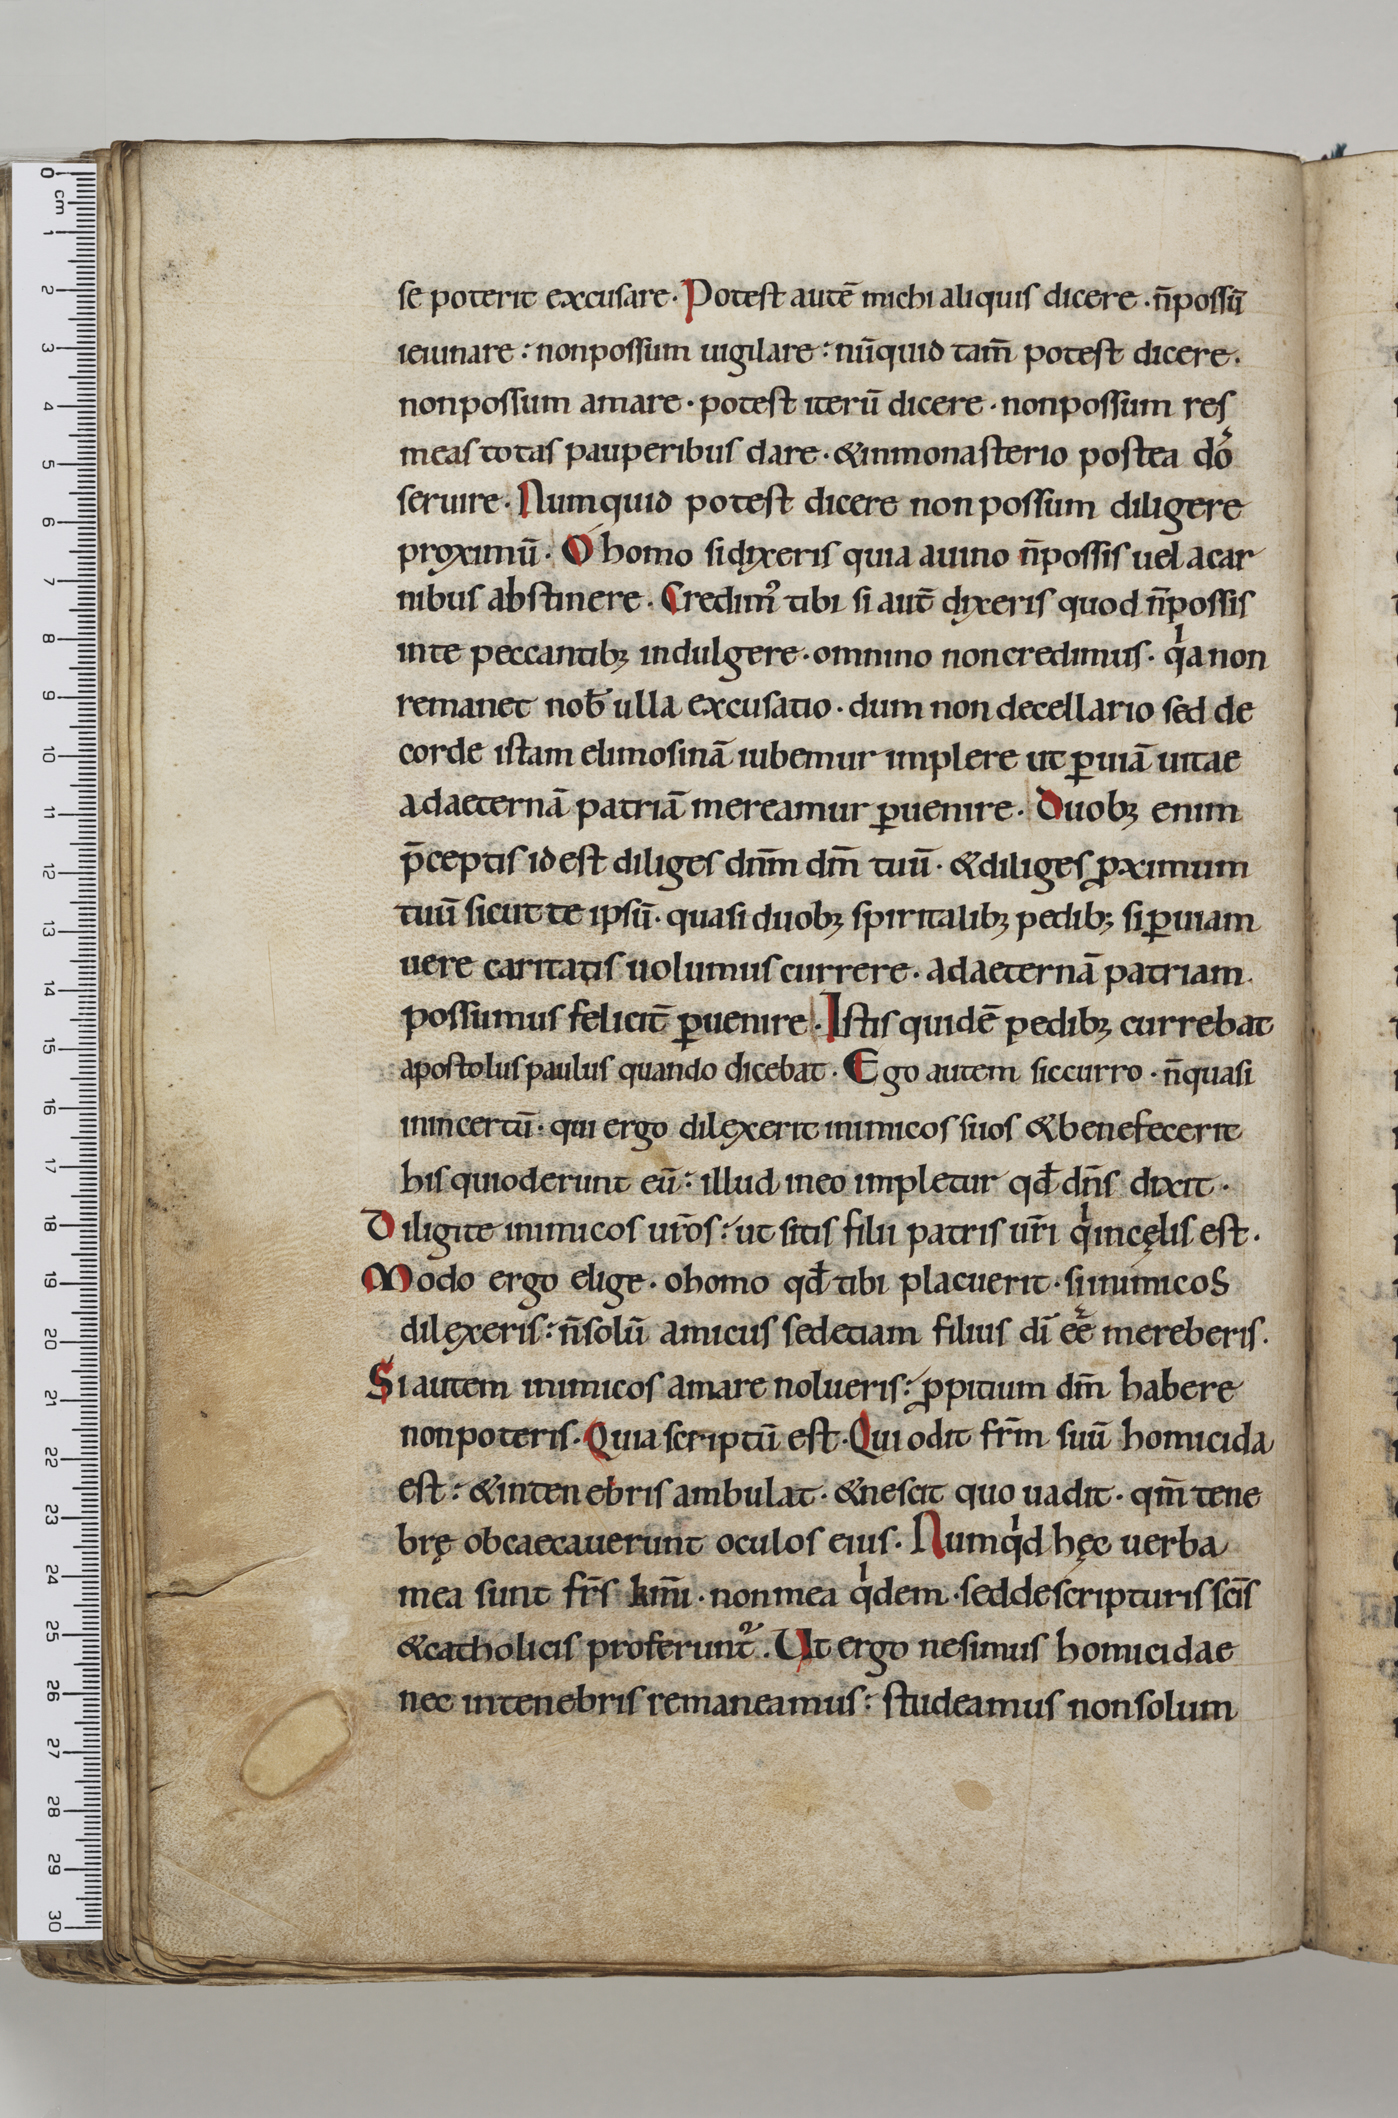 se poterit excusare· Potest autē michi aliquis dicere · n̄possū
ieiunare : nonpossum uigilare : nūquid tam̄ potest dicere.
nonpossum amare · potest iterū dicere · nonpossum res
meas totas pauperibus dare · &inmonasterio postea dō
seruire · Numquid potest dicere non possum diligere
proximū · O homo sidixeris quia auino n̄possis uel acar
nibus abstinere · Credim᾿ tibi si aut̄ dixeris quod n̄possis
inte peccantibꝫ indulgere · omnino noncredimus · qͥa non
remanet nob̄ ulla excusatio · dum non decellario sed de
corde istam elimosinā iubemur implere ut ꝑuiā uitae
adaeternā patriā mereamur ꝑuenire · Duobꝫ enim
p̄ceptis idest diliges dn̄m dm̄ tuū · &diliges ꝓximum
tuū sicut te ipsū · quasi duobꝫ spiritalibꝫ pedibꝫ si ꝑuiam
uere caritatis uolumus currere · adaeternā patriam
possumus felicit̄ ꝑuenire · Istis quidē pedibꝫ currebat
apostolus paulus quando dicebat · Ego autem siccurro · n̄quasi
inincertū · qui ergo dilexerit inimicos suos &benefecerit
his quioderunt eū : illud ineo impletur qd̄ dn̄s dixit ·
Diligite inimicos ur̄os : ut sitis filii patris ur̄i qͥincęlis est ·
Modo ergo elige · ohomo qd̄ tibi placuerit · siinimicos
dilexeris : n̄solū amicus sedetiam filius dī eē mereberis.
Si autem inimicos amare nolueris : ꝓpitium dm̄ habere
nonpoteris · Quia scriptū est · Qui odit fr̄m suū homicida
est : &intenebris ambulat · &nescit quo uadit · qm̄ tene
brę obcaecauerunt oculos eius · Numqͥd hęc uerba
mea sunt fr̄s km̄i · nonmea qͥdem · seddescripturis sc̄is
&catholicis proferunt᷑ . Ut ergo nesimus homicidae
nec intenebris remaneamus : studeamus nonsolum
0 cm
1
2
3
4
5
6
7
8
9
10
11
12
13
14
15
16
17
18
19
20
21
22
23
24
25
26
27
28
29
30